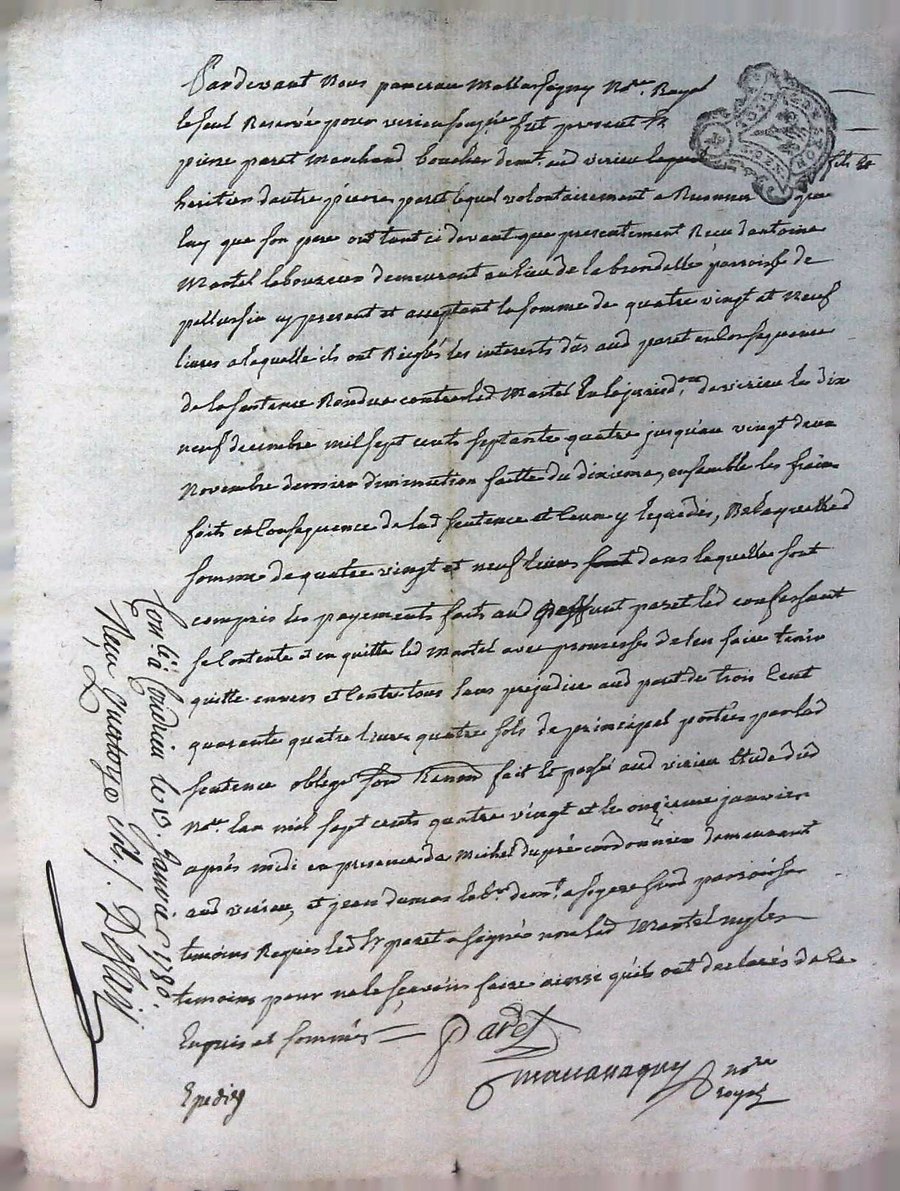 Pardevant Nous pancrau Mallassagny No.re Royal
le seul Reservé pour verieu soussigné fut present Sr
pierre paret Marchand boucher demt. aud verieu lequel fils et
heritier dautre pierre paret lequel volontairement a Reconnu que
luy que son pere ont tant ci devant que presentement Receu dantoine
Martel laboureur demeurant au lieu de la brondelle parroisse de
pellussin cy present et acceptant la somme de quatre vingt et neuf
livres a laquelle ils ont Reiglés les interests dûs aud paret en Consequence
de la sentence Rendue contre led Martel En la jurisd.on de verieu le dix
neuf decembre mil sept cents septante quatre jusquau vingt deux
Novembre dernier diminution faitte du dixieme, ensemble les frais
faits en Consequence de lad sentence et leurs y De laquelle
somme de quatre vingt et neuf livres dans laquelle sont
compris les payements faits aud deffunt paret led confessant
se Contente et en quitte led Martel avec promesse de len faire tenir
quitte envers et Contre tous sans prejudice aud paret de trois Cent
quarante quatre livres quatre sols de principal portées par lad
sentence oblige son Renon fait et passé aud verieu Etude dud
No.re lan mil sept cents quatre vingt et le onzieme janvier
après midi en presence de Michel dupré cordonnier demeurant
aud verieu, et jean dumas lab.r dem.t a parroisse
temoins Requis led Sr paret a signé non led Martel ny les
temoins pour ne le sçavoir faire ainsi quils ont declarés de ce
Enquis et sommés
Paret
Mallassagny No.re
royal
Expedié
Con.lé à Condrieu le 13 Janvier 1780.
Reçu quatorze sols